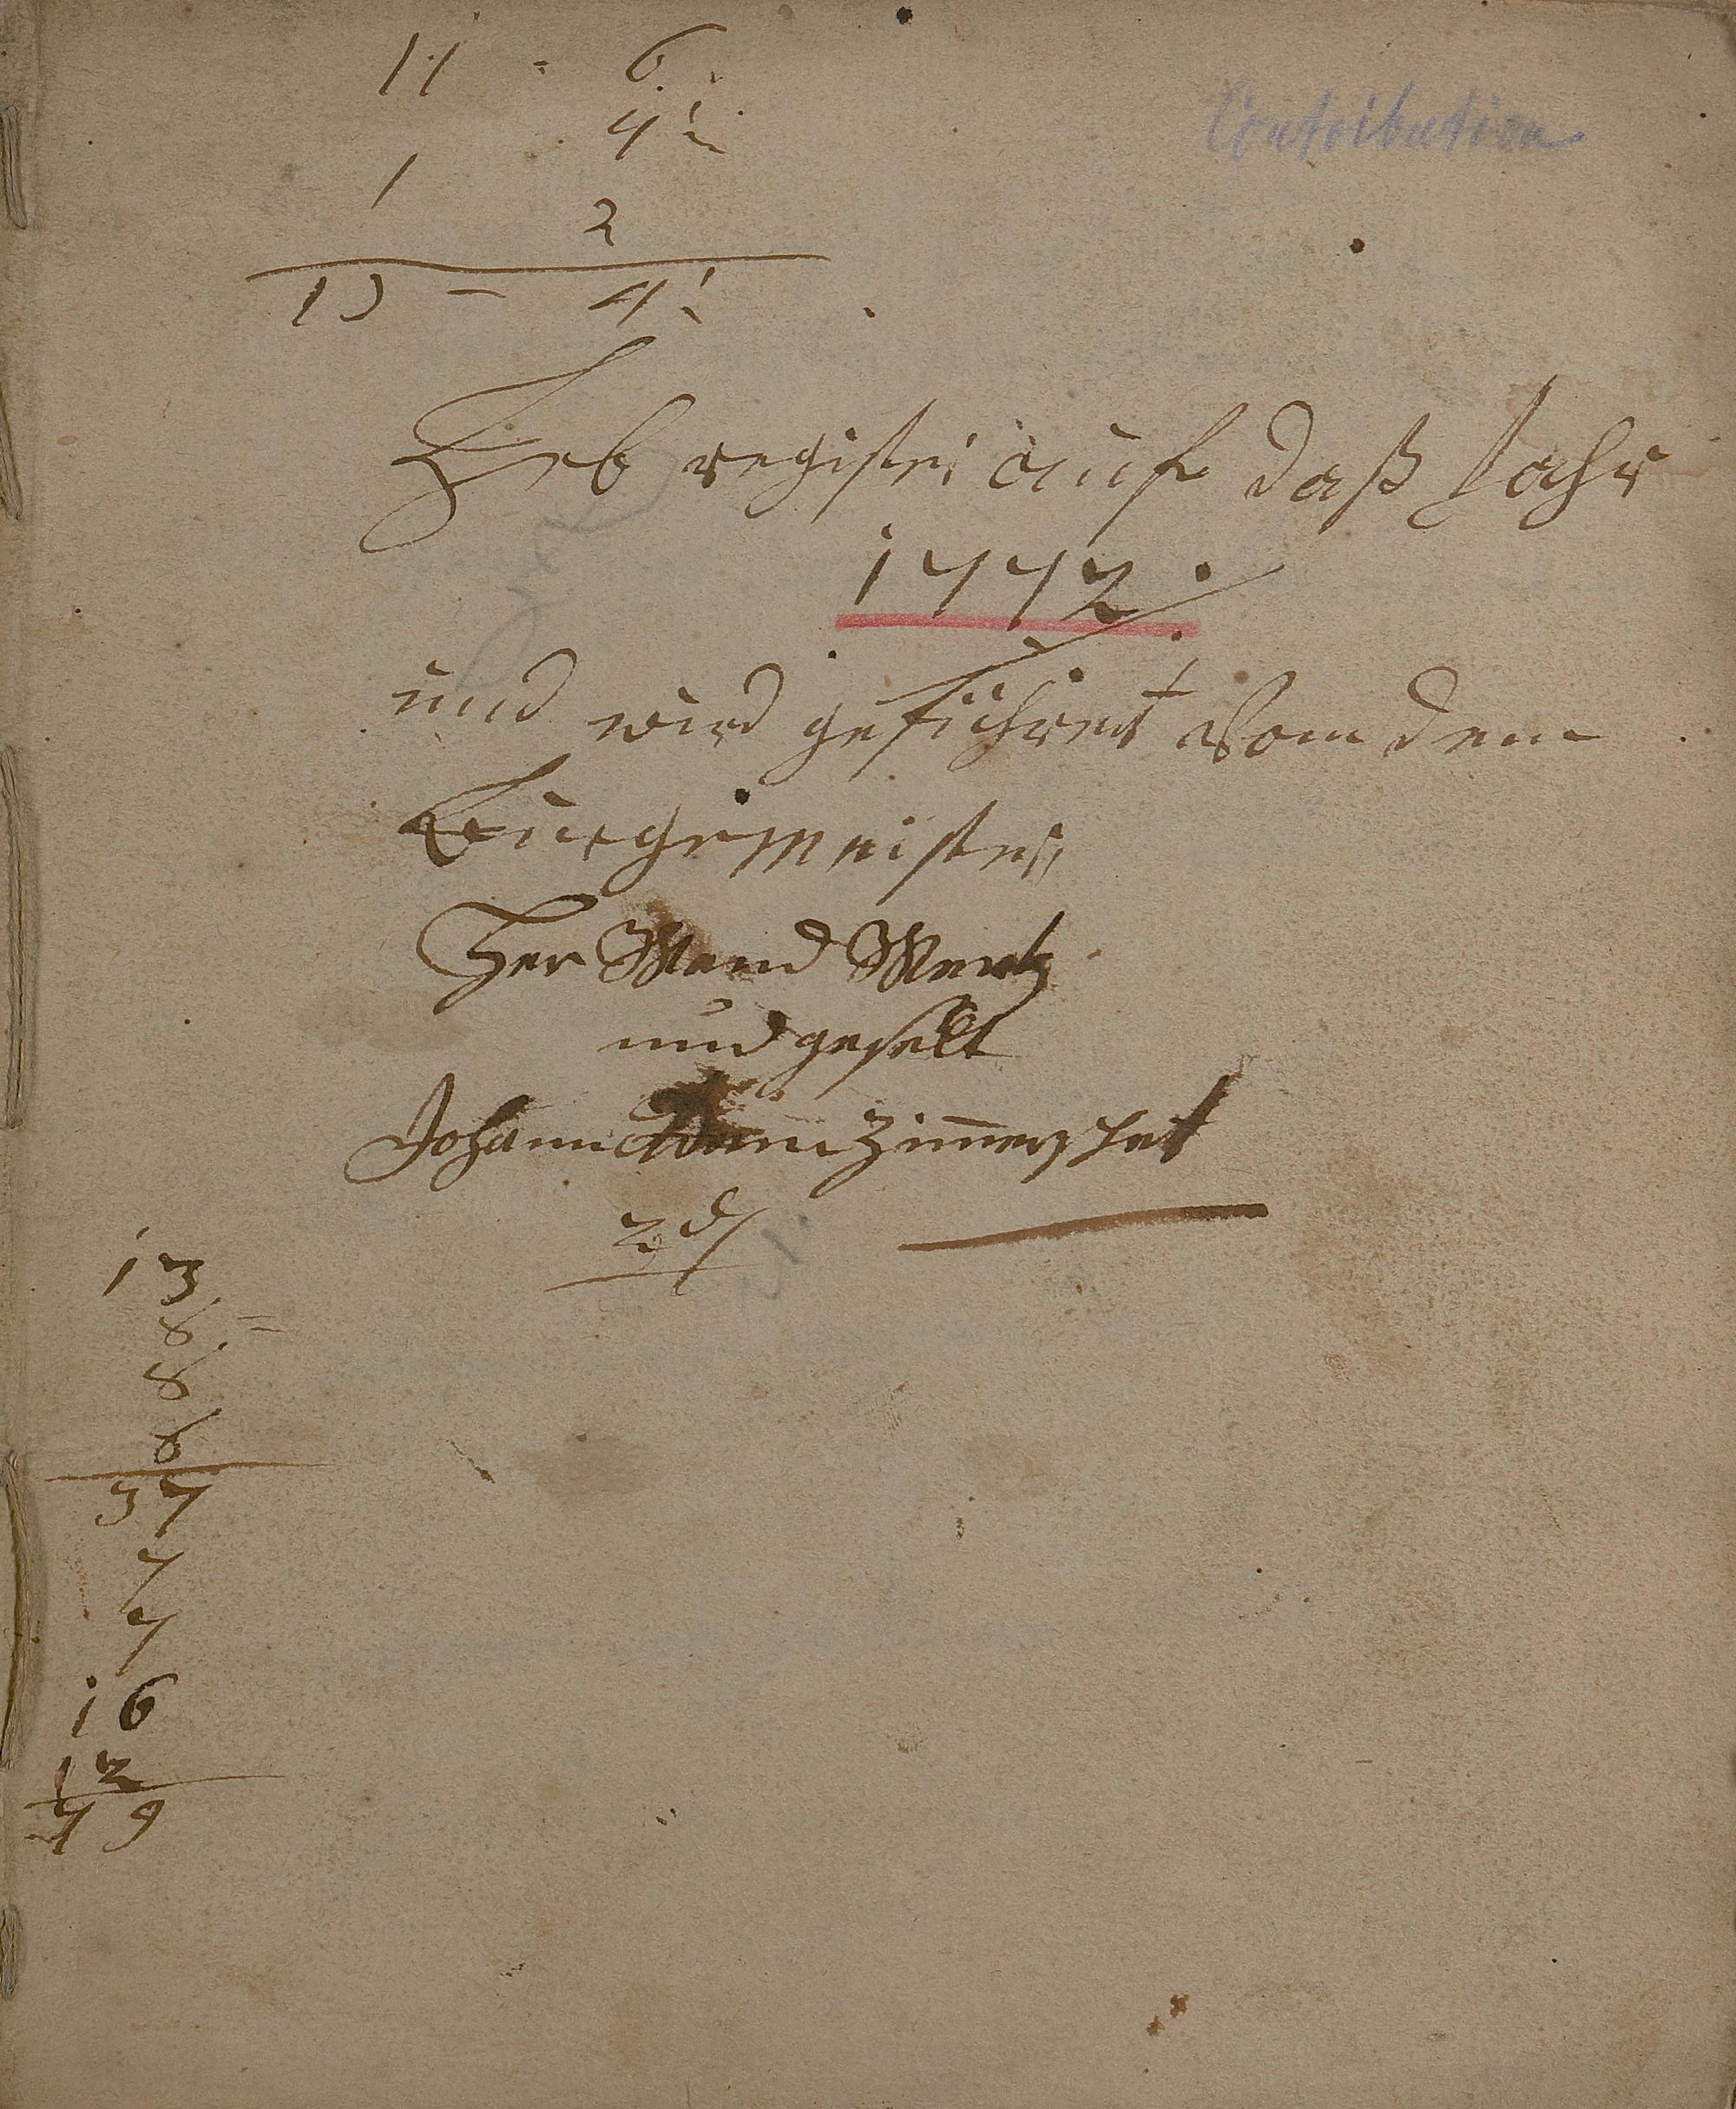 11 - 6
4½
1
2
13 - 4½
Contribution
Heb register auf daß Jahr
1772.
und wird geführet von dem
Burgemeister
Her Wend Mertz
und geselt
Johann Adam Zimer
13
8 =
8
8
37
7
7
16
12
79